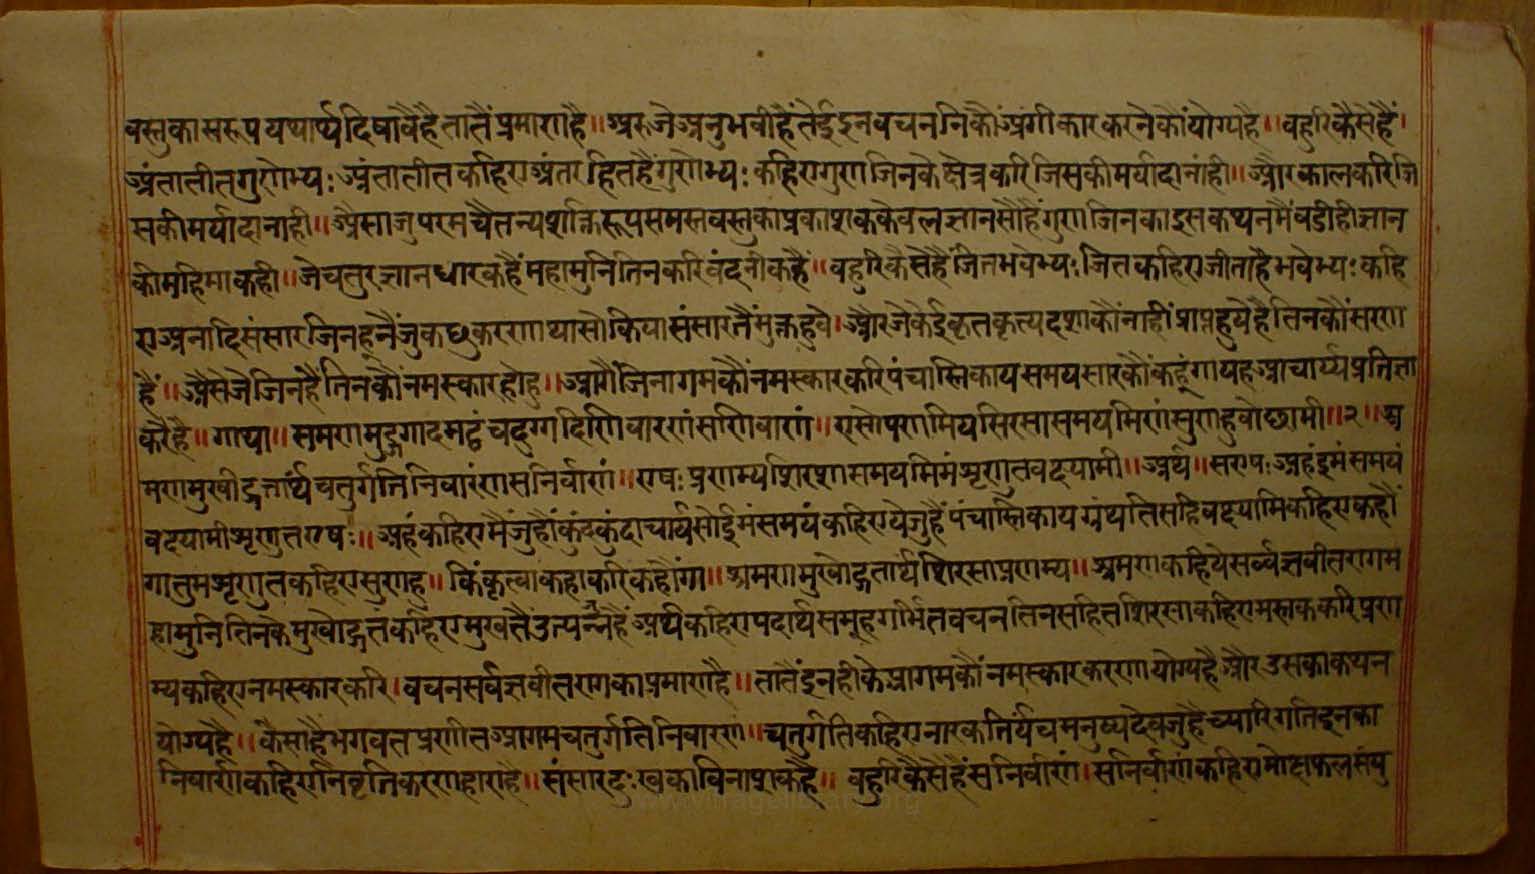 वस्तुका सरूप यथार्थ दिषावै है तातैं प्रमाण है ॥ अरु जे अनुभवी हैं तेई इन वचननिकौं अंगीकार करनेकौं योग्य है ॥ वहुरि कैसे हैं ।
अंतातीतगुणेभ्यः अंतातीत कहिए अंत रहित हैं गुणेभ्यः कहिए गुण जिनके क्षेत्र करि जिसकी मर्यादा नांही ॥ और काल करि जि
सकी मर्यादा नाही ॥ अैसा जु परम चैतन्य शक्तिरूप समस्त वस्तुका प्रकाशक केवलज्ञान सौ हैं गुण जिनका इस कथनमैं वडी ही ज्ञान
की महिमा कही ॥ जे चतुरज्ञान धारक हैं महामुनि तिन करि वंदनीक हैं ॥ वहुरि कैसे हैं जितभवेभ्यः जित कहिए जीता है भवेभ्यः कहि
ए अनादि संसार जिनहूनैं जु कछु करणा था सो किया संसारतैं मुक्त हुवे । और जे केई कृतकृत्य दशाकौं नाहीं प्राप्त हुये है तिनकौं सरण
हैं ॥ अैसे जे जिन हैं तिनकौं नमस्कार होहु ॥ आगैं जिनागमकौं नमस्कार करि पंचास्तिकाय समयसारकौं कहूंगा यह आचार्य्य प्रतिज्ञा
करै है ॥ गाथा ॥ समणमुहुग्गादमट्ठं चदुग्गदिणिवारणं सणिवाणं ॥ एसो पणमिय सिरसा समयमिणं सुणह वोछामी ॥ २ ॥ अ
मणमुखोद्गतार्थं चतुर्गतिनिवारणं सनिर्वाणं ॥ एषः प्रणम्य शिरशा समयमिमं श्रृणुत वक्ष्यामी ॥ अर्थ ॥ स एषः अहं इमं समयं
वक्ष्यामी श्रृणुत एषः ॥ अहं कहिए मैं जु हौं कुंदकुंदाचार्य सो ई इमं समयं कहिए ये जु हैं पंचास्तिकाय ग्रंथ तिसहि वक्ष्यामि कहिए कहौं
गा तुम श्रृणुत कहिए सुणहु ॥ किं कृत्वा कहा करि कहौंगा ॥ श्रमणमुखोद्गतार्थं शिरसा प्रणम्य ॥ श्रमण कहिये सर्वज्ञ वीतराग म
हामुनि तिनके मुखोद्गत कहिए मुखतैं उत्पन्न हैं अर्थ कहिए पदार्थ समूह गर्भित वचन तिन सहित शिरसा कहिए मस्तक करि प्रण
म्य कहिए नमस्कार करि । वचन सर्वज्ञ वीतरागका प्रमाण है ॥ तातैं इनहीके आगमकौं नमस्कार करणा योग्य है और उसका कथन
योग्य है ॥ कैसा है भगवत प्रणीत आगम चतुर्गति निवारणं ॥ चतुर्गति कहिए नारक तिर्यंच मनुष्य देव जु है च्यारि गति इनका
निवारण कहिए निवृति करणहारा है ॥ संसार दुःखका विनाशक है ॥ वहुरि कैसे हैं सनिर्वाणं । सनिर्वाणं कहिए मोक्ष फल संयु